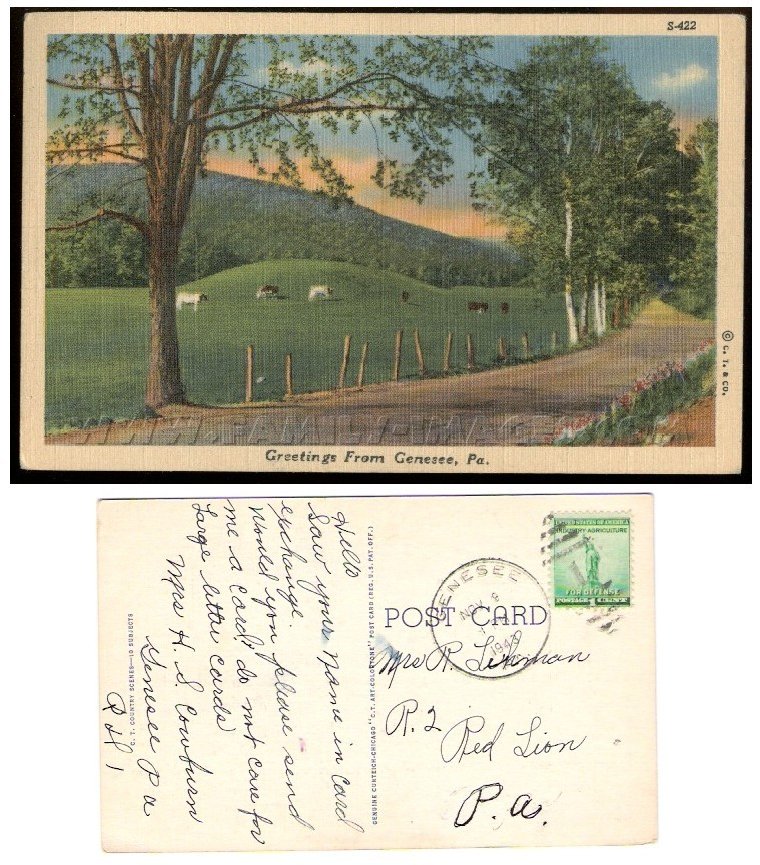 S-422
© C. T. & CO.
WWW.FAMILY-IMAGES.COM
Greetings From Genesee, Pa.
Hello
Saw your Name in Card
exchange.
Would you please send
me a Card; do not care for
Large letter Cards
Mrs H. S. Cowburn
Genesee Pa
Rd 1
"C. T. COUNTRY SCENES—10 SUBJECTS
GENUINE CURTEICH-CHICAGO "C.T. ART-COLORTONE" POST CARD (REG. U.S. PAT. OFF.)
GENESEE
NOV 9
1943
UNITED STATES OF AMERICA
INDUSTRY-AGRICULTURE
FOR DEFENSE
POSTAGE 1 CENT
POST CARD
Mrs R. Linman
R. 2
Red Lion
P.a.